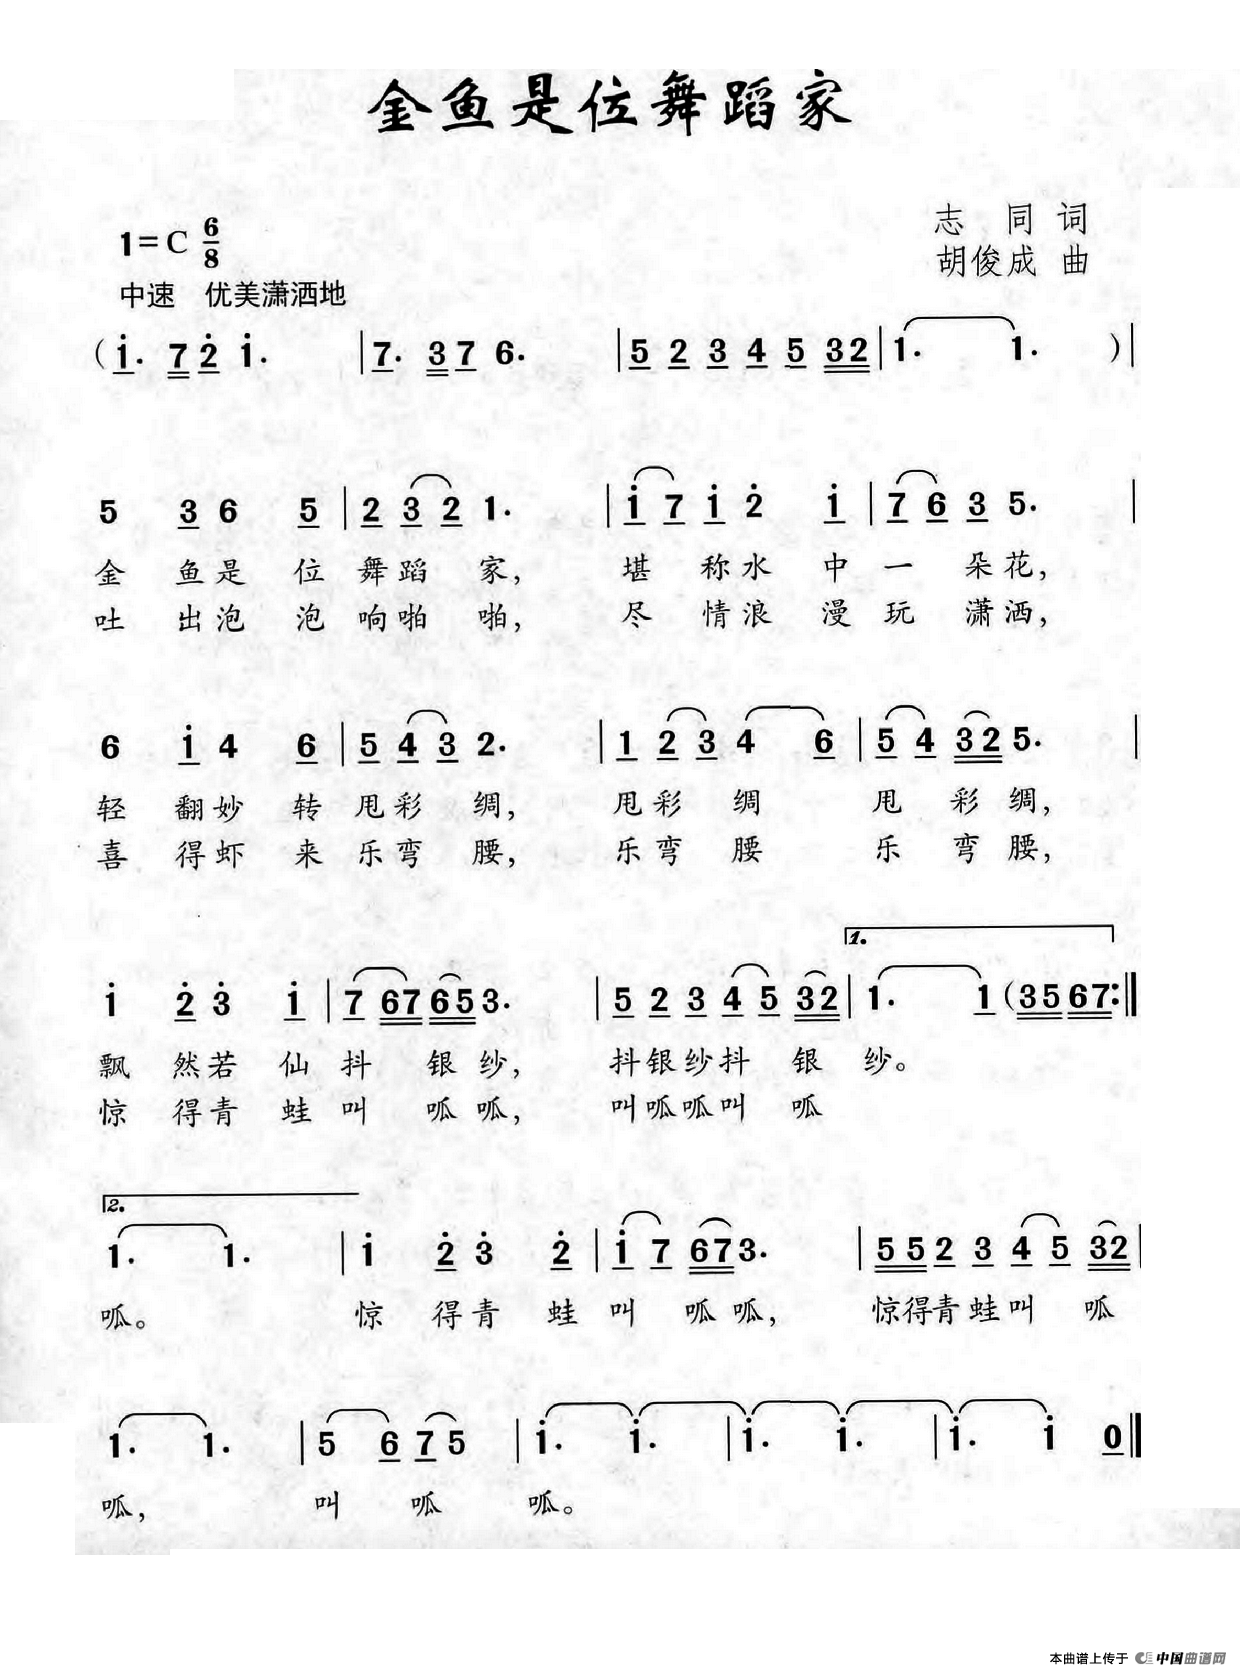 金鱼是位舞蹈家
志 同 词
1=C 6/8
胡俊成 曲
中速 优美潇洒地
(1̇. 7 2̇ 1̇. |7. 3 7 6. |5 2 3 4 5 3 2|1. 1. )|
5 3 6 5|2 3 2 1. |1̇ 7 1̇ 2̇ 1̇|7 6 3 5. |
金 鱼是 位 舞蹈 家, 堪 称水 中 一 朵花,
吐 出泡 泡 响啪 啪, 尽 情浪 漫 玩 潇洒,
6 1̇ 4 6|5 4 3 2. |1 2 3 4 6|5 4 3 2 5. |
轻 翻妙 转 甩彩 绸, 甩彩 绸 甩 彩绸,
喜 得虾 来 乐弯 腰, 乐弯 腰 乐 弯腰,
1.
1̇ 2̇ 3̇ 1̇|7 6 7 6 5 3. |5 2 3 4 5 3 2|1. 1 (3 5 6 7:‖
飘 然若 仙 抖 银 纱, 抖银纱抖 银 纱。
惊 得青 蛙 叫 呱 呱, 叫呱呱叫 呱
2.
1. 1. |1̇ 2̇ 3̇ 2̇|1̇ 7 6 7 3. |5 5 2 3 4 5 3 2|
呱。 惊 得青 蛙 叫 呱 呱, 惊得青蛙叫 呱
1. 1. |5 6 7 5|1̇. 1̇. |1̇. 1̇. |1̇. 1̇ 0‖
呱, 叫 呱 呱。
本曲谱上传于 中国曲谱网